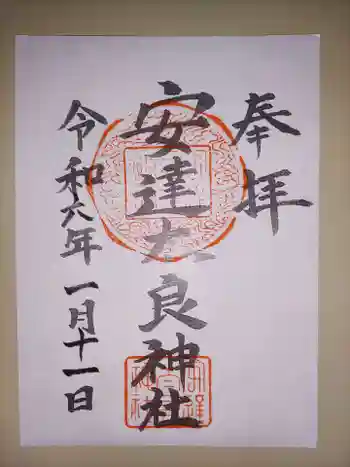 奉拝
安達太良神社
令和六年 一月十一日